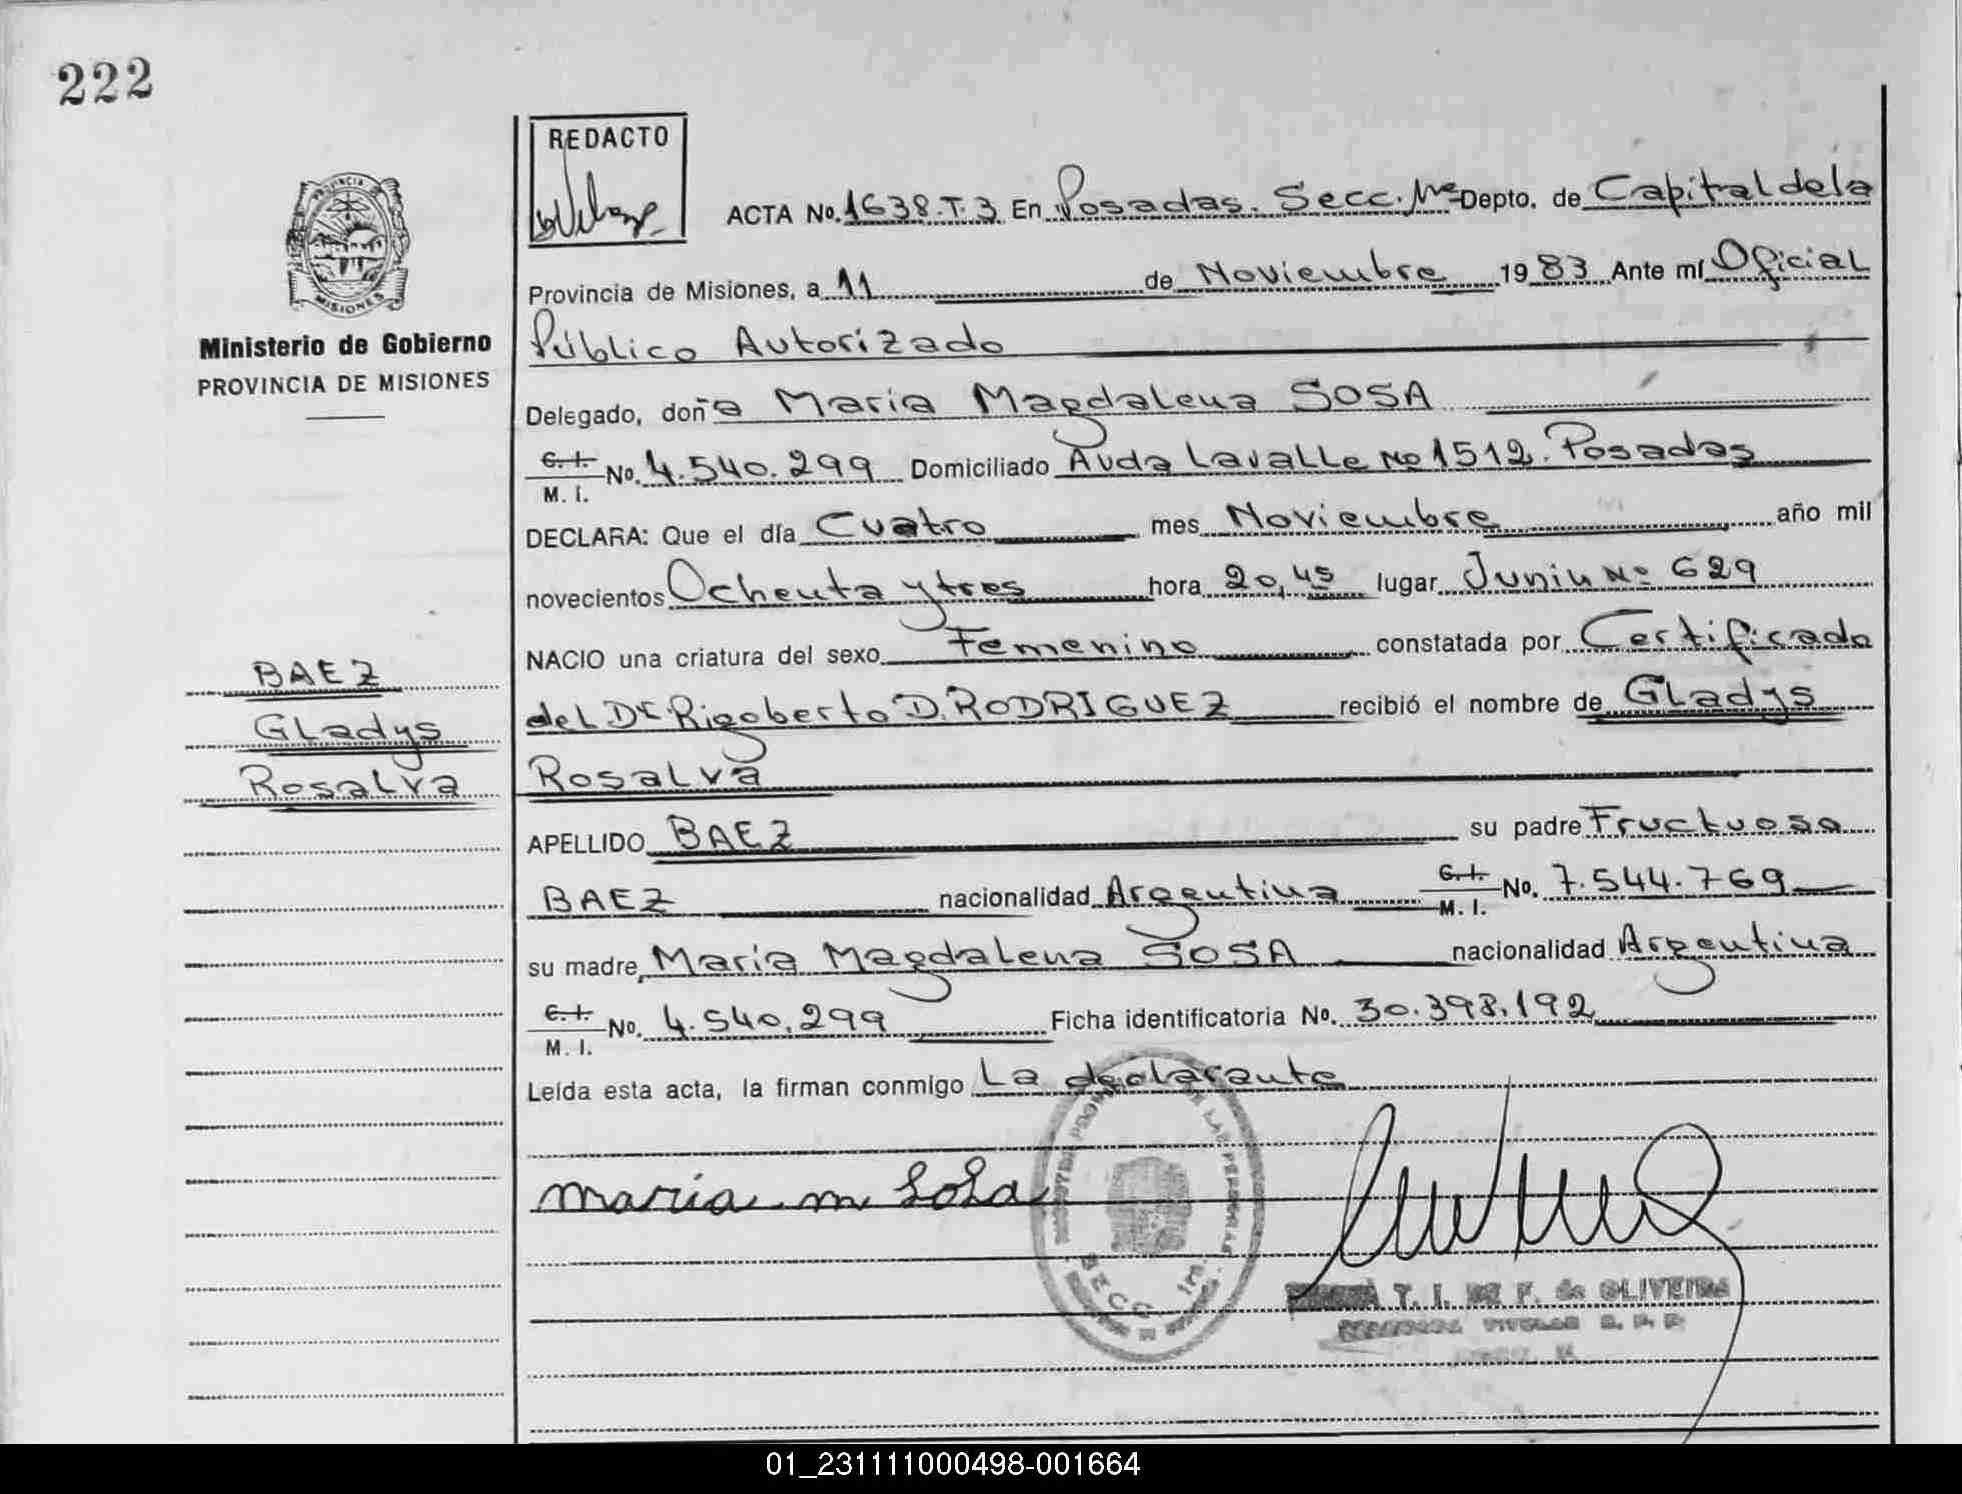 222
REDACTO
PROVINCIA
MISIONES
Ministerio de Gobierno
PROVINCIA DE MISIONES
ACTA No. 1638.T.3 En Posadas. Secc. Depto. de Capital de la
Provincia de Misiones, a 11 de Noviembre 1983 Ante mí Oficial
Público Autorizado
Delegado, doña Maria Magdalena SOSA
C.I.
M. I. No. 4.540.299 Domiciliado Avda Lavalle No 1512. Posadas
DECLARA: Que el día Cuatro mes Noviembre año mil
novecientos Ochenta y tres hora 20,45 lugar Junin No 629
NACIO una criatura del sexo Femenino constatada por Certificado
del Dr Rigoberto D. RODRIGUEZ recibió el nombre de Gladys
Rosalva
BAEZ
Gladys
Rosalva
APELLIDO BAEZ su padre Fructuoso
BAEZ nacionalidad Argentina C.I. M. I. No. 7.544.769
su madre, Maria Magdalena SOSA nacionalidad Argentina
C.I. M. I. No. 4.540.299 Ficha identificatoria No. 30.398.192
Leída esta acta, la firman conmigo La declarante
maria m Sosa
DE LAS PERSONAS
SECC 1ra.
T. I. DE F. de OLIVEIRA
TITULAR
01_231111000498-001664